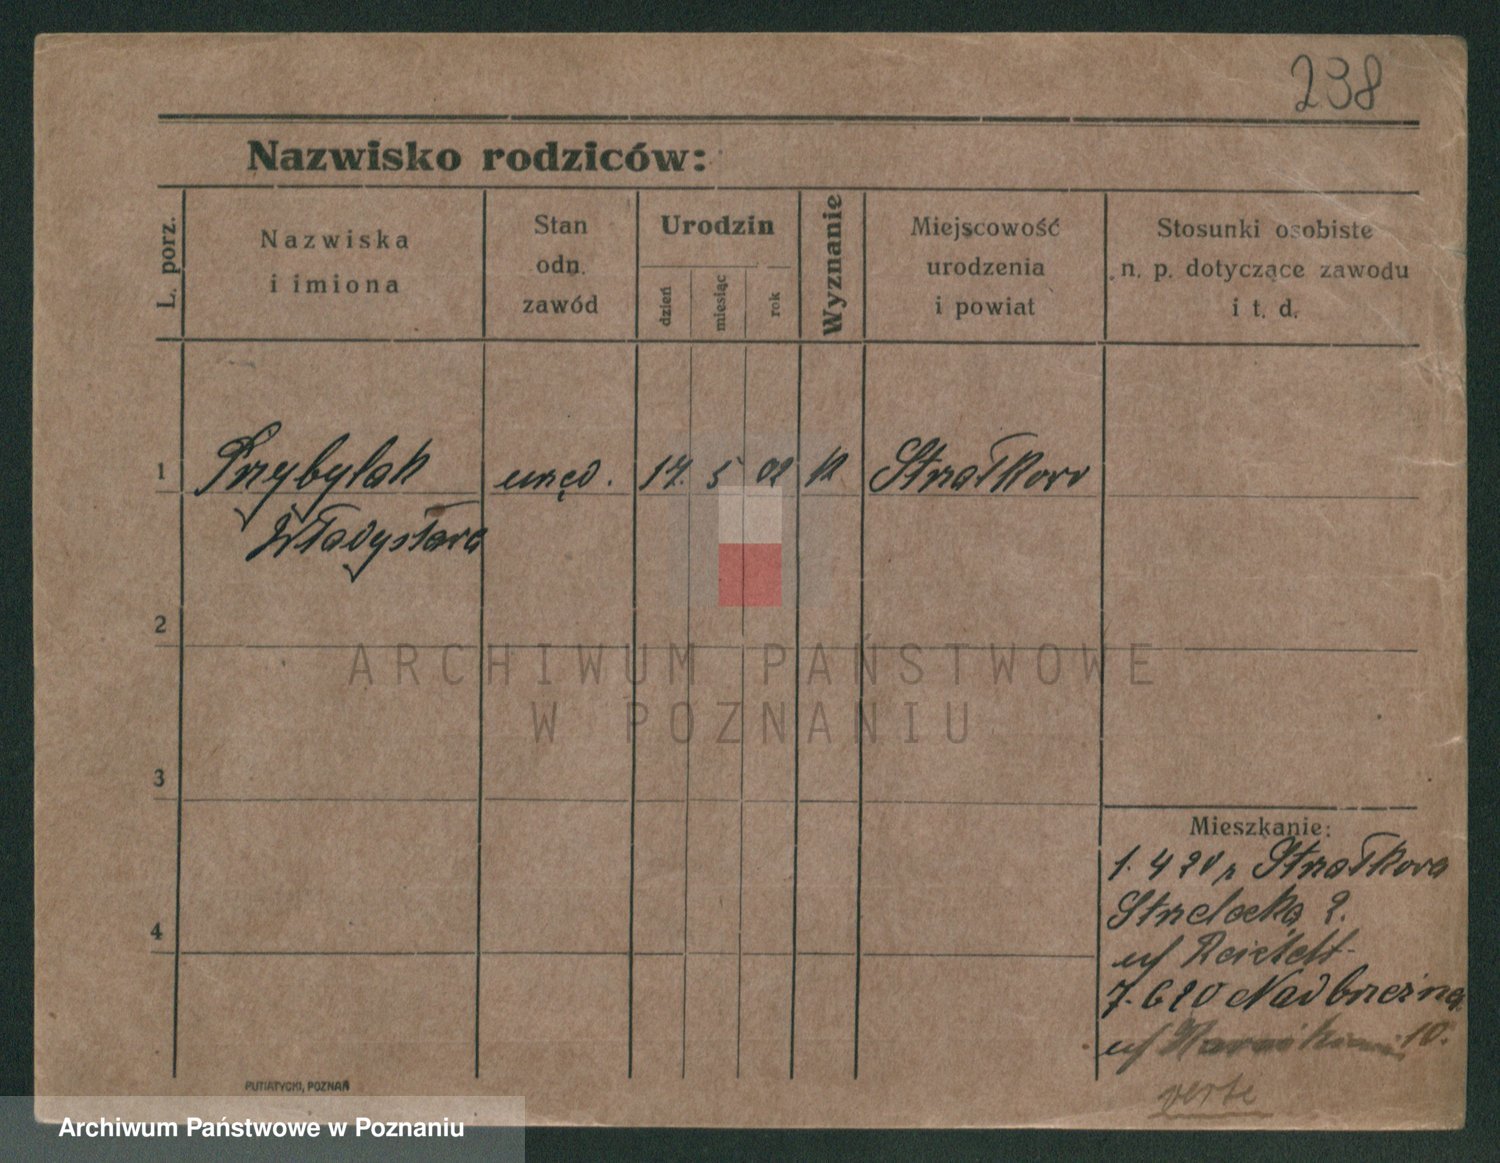 238
Nazwisko rodziców:
L. porz.
Nazwiska
i imiona
Stan
odn.
zawód
Urodzin
dzień
miesiąc
rok
Wyznanie
Miejscowość
urodzenia
i powiat
Stosunki osobiste
n. p. dotyczące zawodu
i t. d.
1 Przybylak urzęd. 17. 5 02 Strzałkowo
Władysława
2
3
4
ARCHIWUM PAŃSTWOWE
W POZNANIU
Mieszkanie:
1. 4 20 z Strzałkowa
Strzelecka 2.
u/
7. 6 20 Nadbrzeżna
u/ 10.
verte
PUTIATYCKI, POZNAŃ
Archiwum Państwowe w Poznaniu